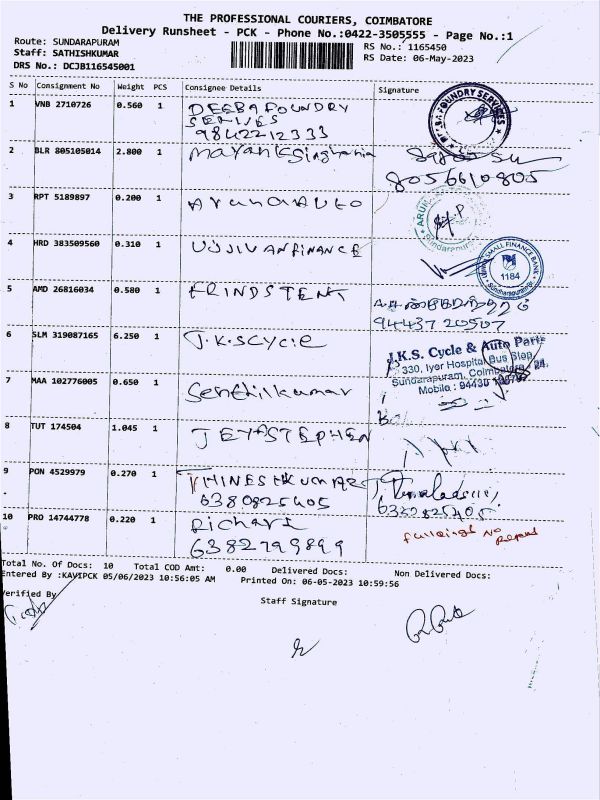 THE PROFESSIONAL COURIERS, COIMBATORE
Delivery Runsheet - PCK - Phone No.:0422-3505555 - Page No.:1
Route: SUNDARAPURAM
Staff: SATHISHKUMAR
DRS No.: DCJB116545001
RS No.: 1165450
RS Date: 06-May-2023
S No Consignment No Weight PCS Consignee Details Signature
1 VNB 2710726 0.560 1 DEEBA FOUNDRY
SERVICES
9842212333
FOUNDRY SERVICES
2 BLR 805105014 2.800 1 Mayank Singhania
8056610805
3 RPT 5189897 0.200 1 Arun Auto
Sundarapuram
4 HRD 383509560 0.310 1 UJJIVAN FINANCE
SMALL FINANCE BANK
1184
Sundarapuram
5 AMD 26816034 0.580 1 FRINDS TENT
9443720507
6 SLM 319087165 6.250 1 J.K.S Cycle
J.K.S. Cycle & Auto Parts
330, Iyer Hospital Bus Stop,
Sundarapuram, Coimbatore - 24.
Mobile : 94430
7 MAA 102776005 0.650 1 Senthilkumar
8 TUT 174504 1.045 1 JEYASTEPHEN
9 PON 4529979 0.270 1 THINESHKUMAR
6380825405
6380825405
10 PRO 14744778 0.220 1 Richard
6382799899
No
Total No. Of Docs: 10 Total COD Amt: 0.00 Delivered Docs: Non Delivered Docs:
Entered By :KAVIPCK 05/06/2023 10:56:05 AM Printed On: 06-05-2023 10:59:56
Verified By
Staff Signature